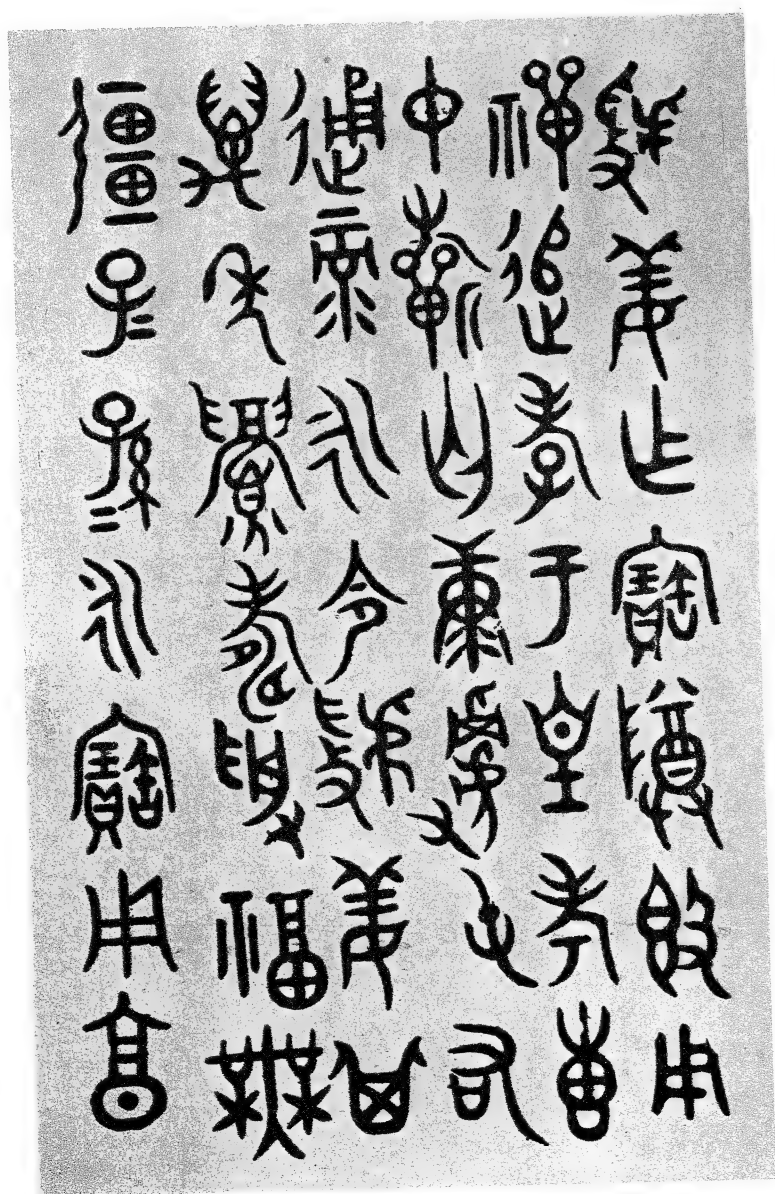 姜乍寶尊𣪘用
禪追孝于皇考惠
中祈匄康屯右
通彔永令姜其
萬年眉壽受福無
疆子=孫=永寶用亯